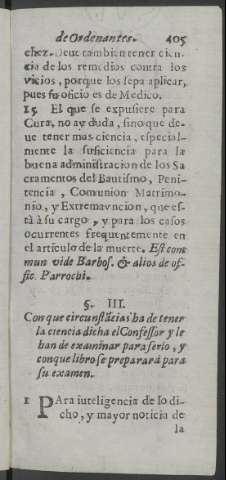 de Ordenantes. 405
chez. Deue tambien tener cien-
cia de los remedios contra los
vicios, porque los sepa aplicar,
pues su oficio es de Medico.
15. El que se expusiere para
Cura, no ay duda, sino que de-
ue tener mas ciencia, especial-
mente la suficiencia para la
buena administracion de los Sa
cramentos del Bautismo, Peni-
tencia, Comunion Matrimo-
nio, y Extremavncion, que es-
tà à su cargo, y para los casos
ocurrentes frequentemente en
el articulo de la muerte. Est com
mun vide Barbos. & alios de of-
fic. Parrochi.
§. III.
Con que circunstãcias ha de tener
la ciencia dicha el Confessor y le
han de examinar para serlo, y
con que libro se preparará para
su examen.
1 PAra inteligencia de lo di-
cho, y mayor noticia de
la